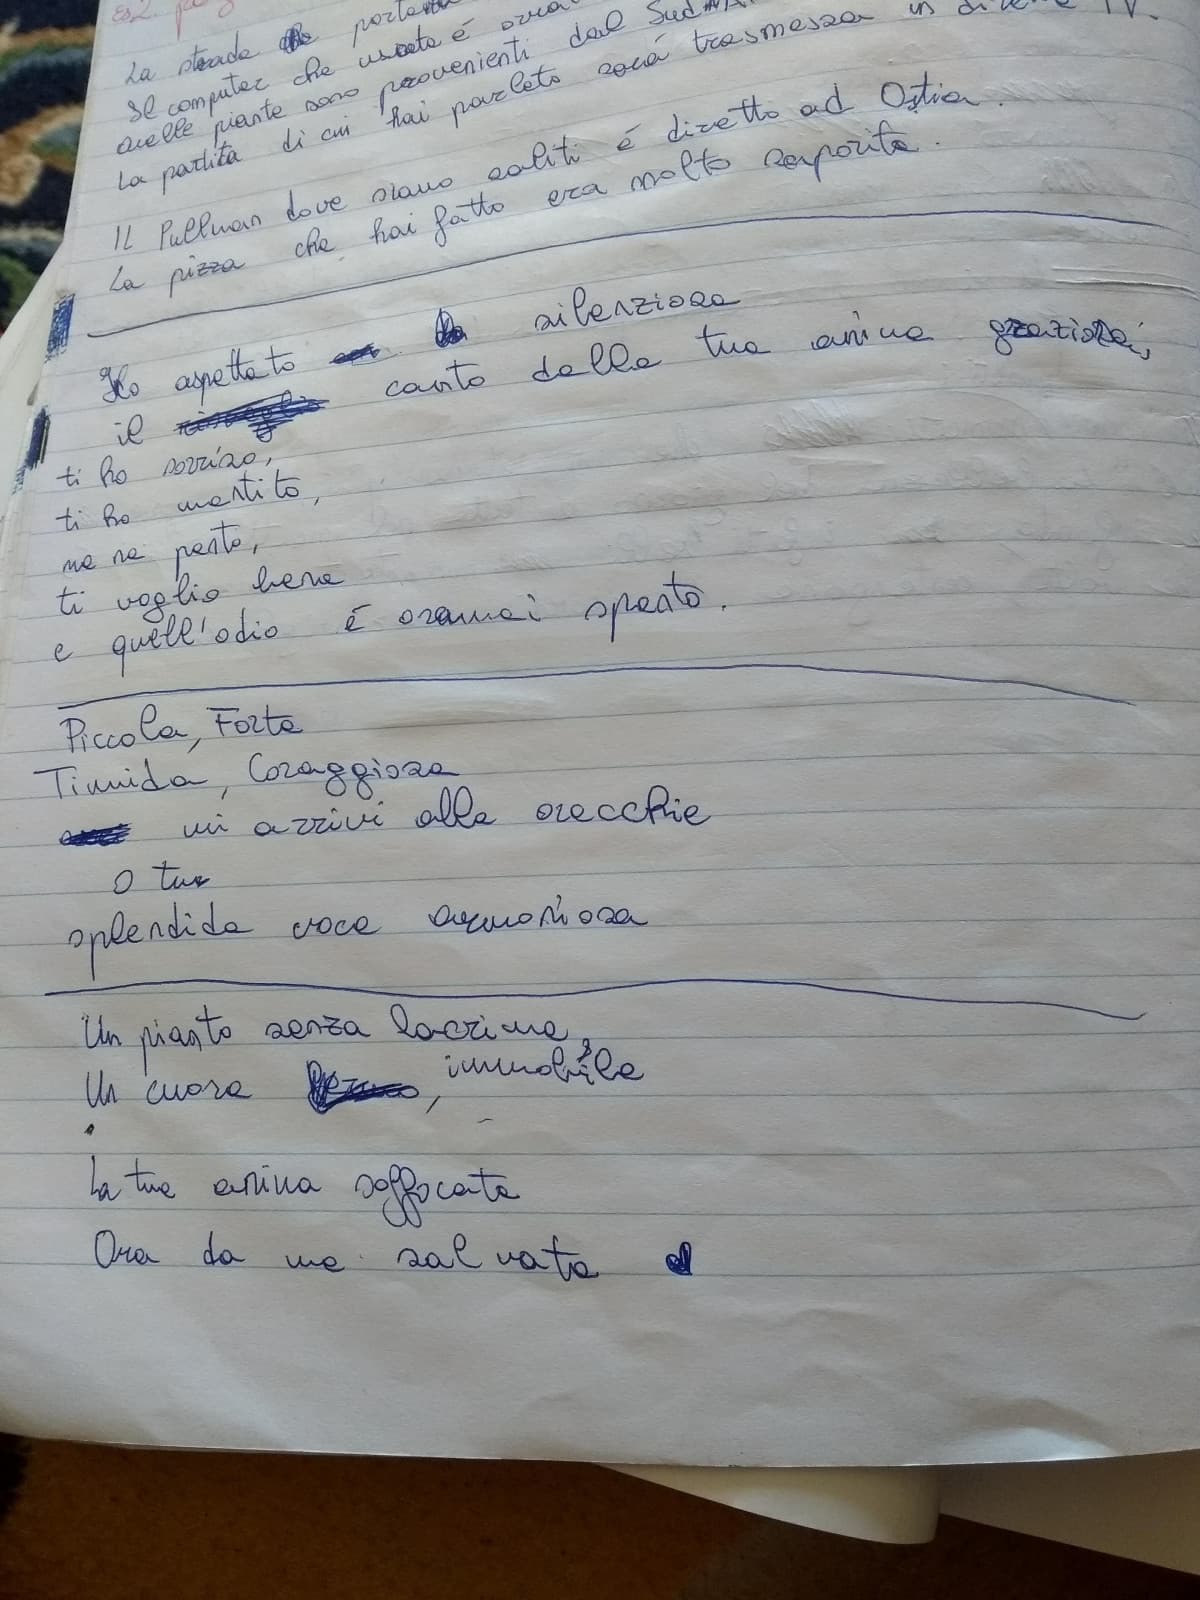 Es 2. pag
La strada portata
Il computer che usate è
quelle piante sono provenienti dal Sud
La partita di cui hai parlato sarà trasmessa in diretta TV.
Il Pullman dove siamo saliti è diretto ad Ostia.
La pizza che hai fatto era molto saporita.
Ho aspettato silenziosa
il canto della tua anima graziosa,
ti ho sorriso,
ti ho mentito,
me ne pento,
ti voglio bene
e quell'odio è oramai spento.
Piccola, Forte
Timida, Coraggiosa
mi arrivi alle orecchie
o tua
splendida voce armoniosa
Un pianto senza lacrime
Un cuore, immobile
La tua anima soffocata
Ora da me salvata